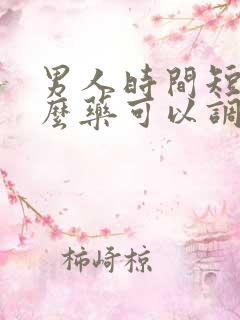 男人時間短
麼藥可以調
柿崎椋